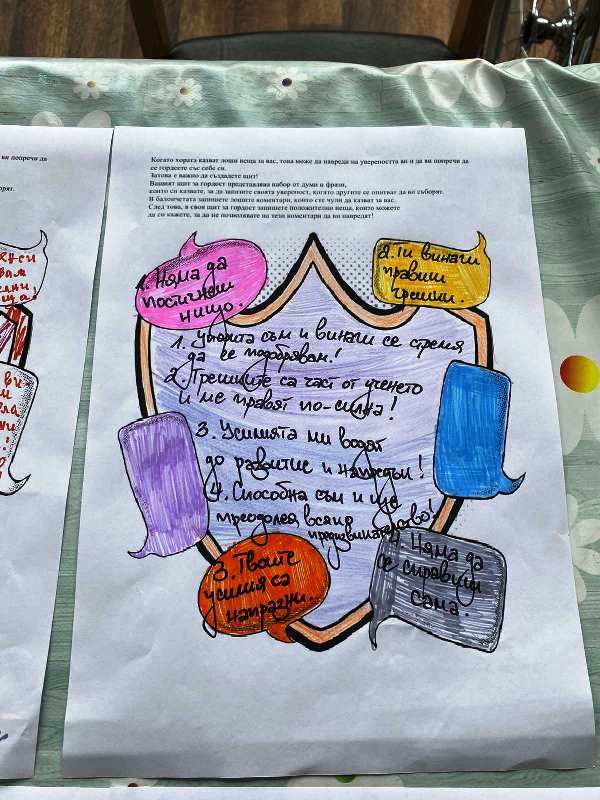 Когато хората казват лоши неща за вас, това може да навреди на увереността ви и да ви попречи да
се гордеете със себе си.
Затова е важно да създадете щит!
Вашият щит за гордост представлява набор от думи и фрази,
които си казвате, за да запазите своята увереност, когато другите се опитват да ви съборят.
В балончетата запишете лошите коментари, които сте чули да казват за вас.
След това, в своя щит за гордост запишете положителни неща, които можете
да си кажете, за да не позволявате на тези коментари да ви навредят!
1. Няма да
постигнеш
нищо.
2. Ти винаги
правиш
грешки.
1. Упорита съм и винаги се стремя
да се подобрявам!
2. Грешките са част от ученето
и ме правят по-силна!
3. Усилията ми водят
до развитие и напредък!
4. Способна съм и ще
преодолея всяко
предизвикателство!
3. Твоите
усилия са
напразни.
4. Няма да
се справиш
сама.
ви попречи да